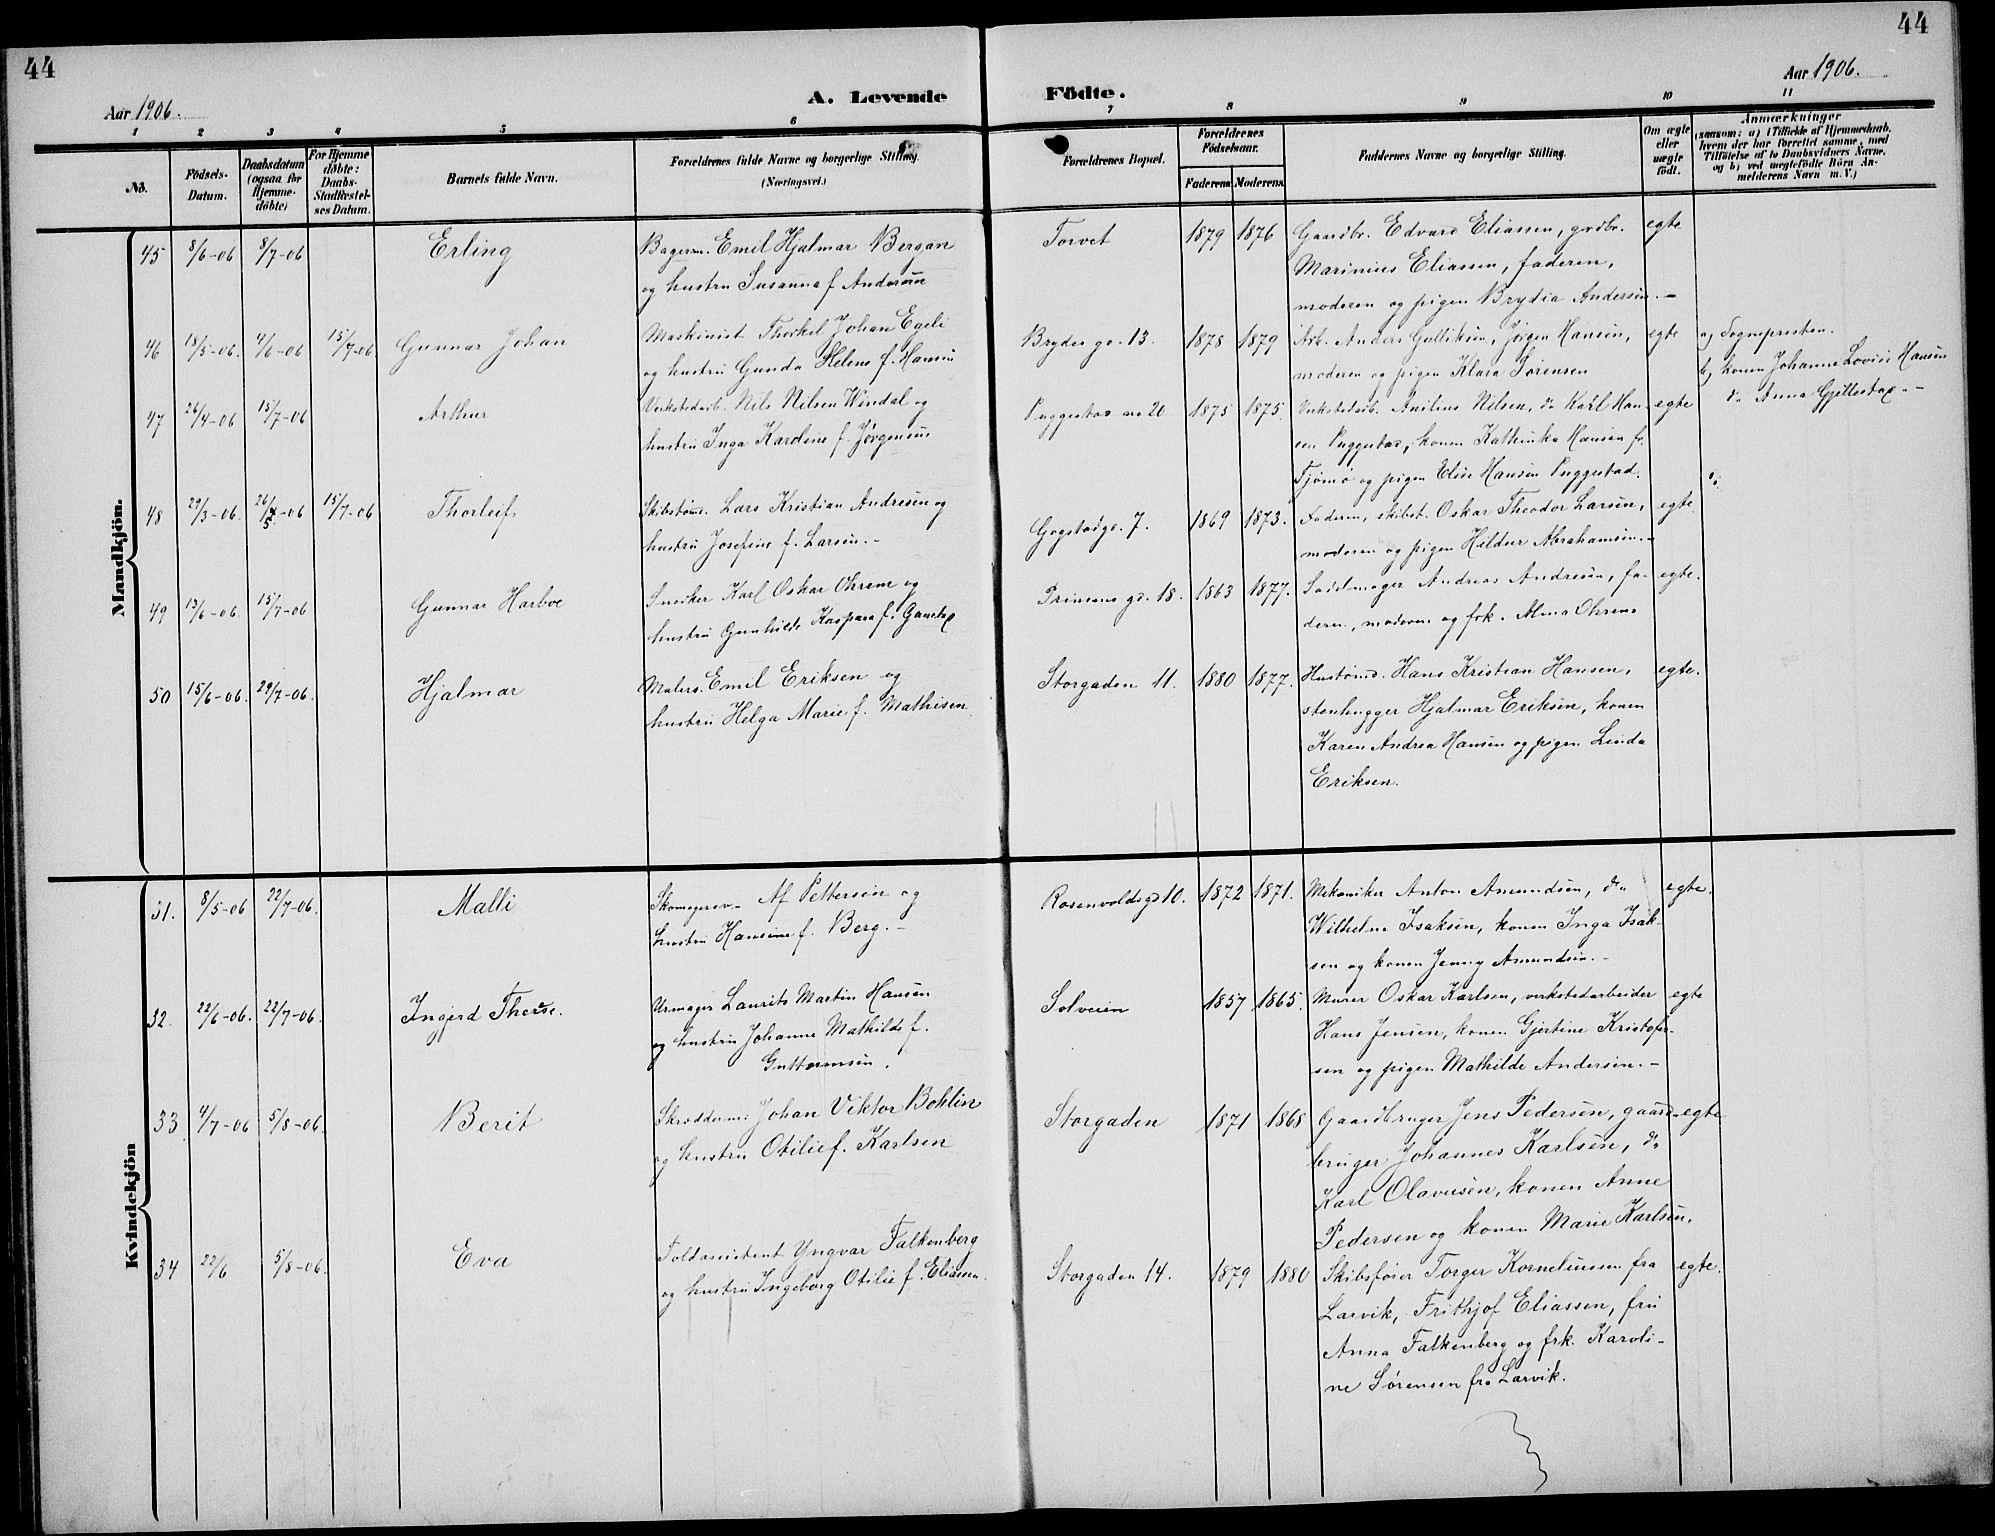 44
44
Aar 1906.
A. Levende
Födte.
Aar 1906.
1 2 3 4 5 6 7 8 9 10 11
No.
Födsels-
Datum.
Daabsdatum
(ogsaa for
Hjemme-
döbte)
For Hjemme
döbte:
Daabs-
Stadfæstel-
ses Datum.
Barnets fulde Navn.
Forældrenes fulde Navne og borgerlige Stilling.
(Næringsvei.)
Forældrenes Bopæl.
Forældrenes
Födselsaar.
Faderens Moderens
Faddernes Navne og borgerlige Stilling.
Om ægte
eller
uægte
födt.
Anmærkninger
(saasom: a) i Tilfælde af Hjemmedaab,
hvem der har forrettet samme, med
Tilföielse af to Daabsvidners Navne,
og b) ved uægtefödte Börn An-
melderens Navn m. V.)
Mandkjön.
45 8/6-06 8/7-06 Erling
Bagerm. Emil Hjalmar Bergan
og hustru Susanna f. Andersen
Torvet 1879 1876
Gaardbr. Edvard Eliassen, grdbr.
Marinius Eliassen, faderen,
moderen og pigen Brydia Andersen.-
egte
46 18/5-06. 4/6-06 15/7-06 Gunnar Johan
Maskinist Thorkel Johan Egeli
og hustru Gunda Helene f. Hansen
Brydes gd. 13. 1878 1879
Arb. Anders Gulliksen, Jørgen Hansen,
moderen og pigen Klara Sørensen
egte
a) Sognepresten.
b) konen Johanne Lovise Hansen
do Anna Gjellestad.-
47 26/4-06 15/7-06 Arthur
Verkstedarb. Nils Nilsen Windal og
hustru Inga Karoline f. Jørgensen
Puggestad no 20 1875 1875.
Verkstedarb. Anilius Nilsen, do Karl Han-
sen Puggestad, konen Kathinka Hansen fr.
Tjømø og pigen Elise Hansen Puggestad.
egte
48 29/3-06. 26/4-06 15/7-06 Thorleif
Skibstømr. Lars Kristian Andresen og
hustru Josefine f. Larsen.-
Gogstadgd. 7. 1869 1873.
Faderen, skibst. Oskar Theodor Larsen,
moderen og pigen Hildur Abrahamsen.-
egte
49 13/6-06. 15/7-06 Gunnar Harboe
Snedker Karl Oskar Ohrem og
hustru Gunhilde Kaspara f.
Prinsens gd. 18. 1863 1877.
Sadelmager Andreas Andresen, fa-
deren, moderen og frk. Alma Ohrem
egte.
50 15/6-06. 29/7-06. Hjalmar
Malers. Emil Eriksen og
hustru Helga Marie f. Mathisen
Storgaden 11. 1880 1877.
Hustømd. Hans Kristian Hansen,
stenhugger Hjalmar Eriksen, konen
Karen Andrea Hansen og pigen Linda
Eriksen.
egte.
Kvindekjön
31. 8/5-06 22/7-06. Malli
Skomagersv. Af Pettersen og
hustru Hansine f. Berg.-
Rosenvoldsgd 10. 1872 1871.
Mekaniker Anton Amundsen, do
Wilhelm Isaksen, konen Inga Isak-
sen og konen Jenny Amundsen.-
egte.
32. 22/6-06. 22/7-06. Ingerd Therese.
Urmager Laurits Martin Hansen
og hustru Johanne Mathilde f.
Guttormsen.
Solveien 1857 1865.
Murer Oskar Karlsen, verkstedarbeider
Hans Jensen, konen Gjertine Kristofer-
sen og pigen Mathilde Andersen.-
egte
33. 4/7-06 5/8-06. Berit
Skrædderm. Johan Viktor Bohlin
og hustru Otilie f. Karlsen
Storgaden 1871 1868
Gaardbruger Jens Pedersen, gaard-
bruger Johannes Karlsen, do
Karl Olavesen, konen Anne
Pedersen og konen Marie Karlsen.
egte
34 22/6 5/8-06. Eva
Toldassistent Yngvar Falkenberg
og hustru Ingeborg Otilie f. Eliassen.
Storgaden 14. 1879 1880
Skibsfører Torger Korneliussen fra
Larvik, Frithjof Eliassen, fru
Anna Falkenberg og frk. Karoli-
ne Sørensen fra Larvik.
egte.